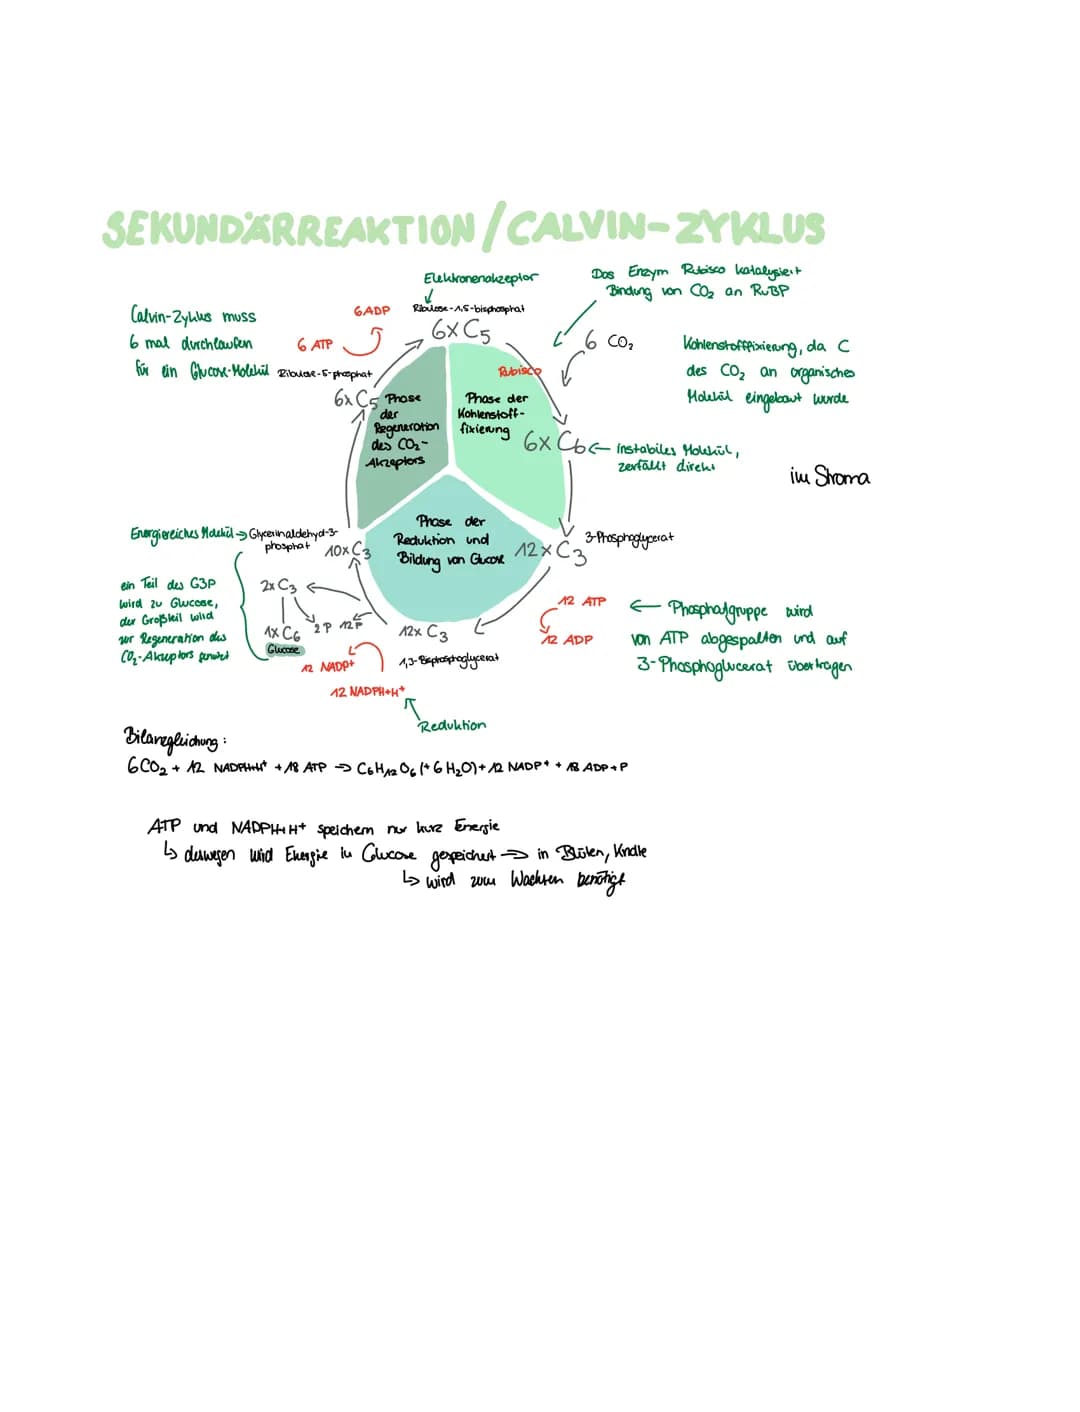 SEKUNDÄRREAKTION/CALVIN-ZYKLUS
Elektronenakzeptor
Das Enzym Rubisco katalysiert
Bindung von CO₂ an RuBP
Calvin-Zyklus muss
6 mal durchlaufen
für ein Glucose-Molekül
6 ADP
6 ATP
Ribulose-1,5-bisphosphat
6x C5
6 CO₂
Rubisco
Kohlenstofffixierung, da C
des CO₂ an organisches
Molekül eingebaut wurde
Ribulose-5-phosphat
6x C5
Phase
der
Regeneration
des CO₂-
Akzeptors
Phase der
Kohlenstoff-
fixierung
6x C6
← Instabiles Molekül,
zerfällt direkt
im Stroma
Phase der
Reduktion und
Bildung von Glucose
12x C3
3-Phosphoglycerat
Energiereiches Molekül → Glycerinaldehyd-3-
phosphat
10x C3
ein Teil des G3P
wird zu Glucose,
der Großteil wird
zur Regeneration des
CO₂-Akzeptors
2x C3
1x C6
Glucose
2 P
12 P
12x C3
1,3-Bisphosphoglycerat
12 ATP
12 ADP
← Phosphatgruppe wird
von ATP abgespalten und auf
3-Phosphoglycerat übertragen
12 NADP+
12 NADPH+H⁺
Reduktion
Bilanzgleichung:
6CO₂ + 12 NADPH+H⁺ + 18 ATP → C6H12O6 (+ 6 H₂O) + 12 NADP⁺ + 18 ADP + P
ATP und NADPH+H⁺ speichern nur kurz Energie
↳ deswegen wird Energie in Glucose gespeichert → in Blüten,
↳ wird zum Wachsen benötigt